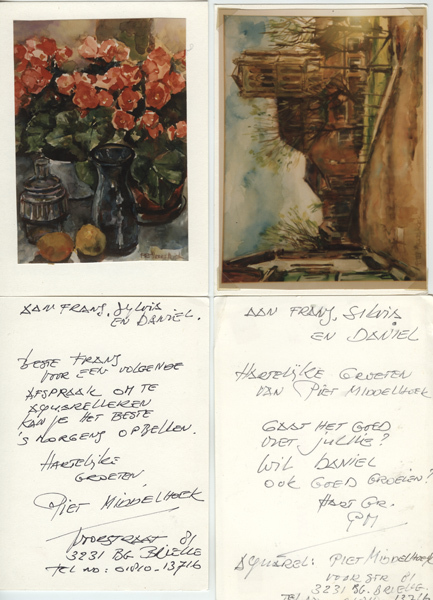 AAN FRANS, SYLVIA
EN DANIEL.
BESTE FRANS
VOOR EEN VOLGENDE
AFSPRAAK OM TE
AQUARELLEREN
KAN JE HET BESTE
'S MORGENS OPBELLEN.
HARTELIJKE
GROETEN,
PIET MIDDELHOEK
VOORSTRAAT 81
3231 BG. BRIELLE
TEL NO: 01810-13716
AAN FRANS, SILVIA
EN DANIEL
HARTELIJKE GROETEN
VAN PIET MIDDELHOEK
GAAT HET GOED
MET JULLIE?
WIL DANIEL
OOK GOED GROEIEN?
HART GR.
PM
AQUAREL: PIET MIDDELHOEK
VOORSTR 81
3231 BG. BRIELLE
TEL NO 01810-13716